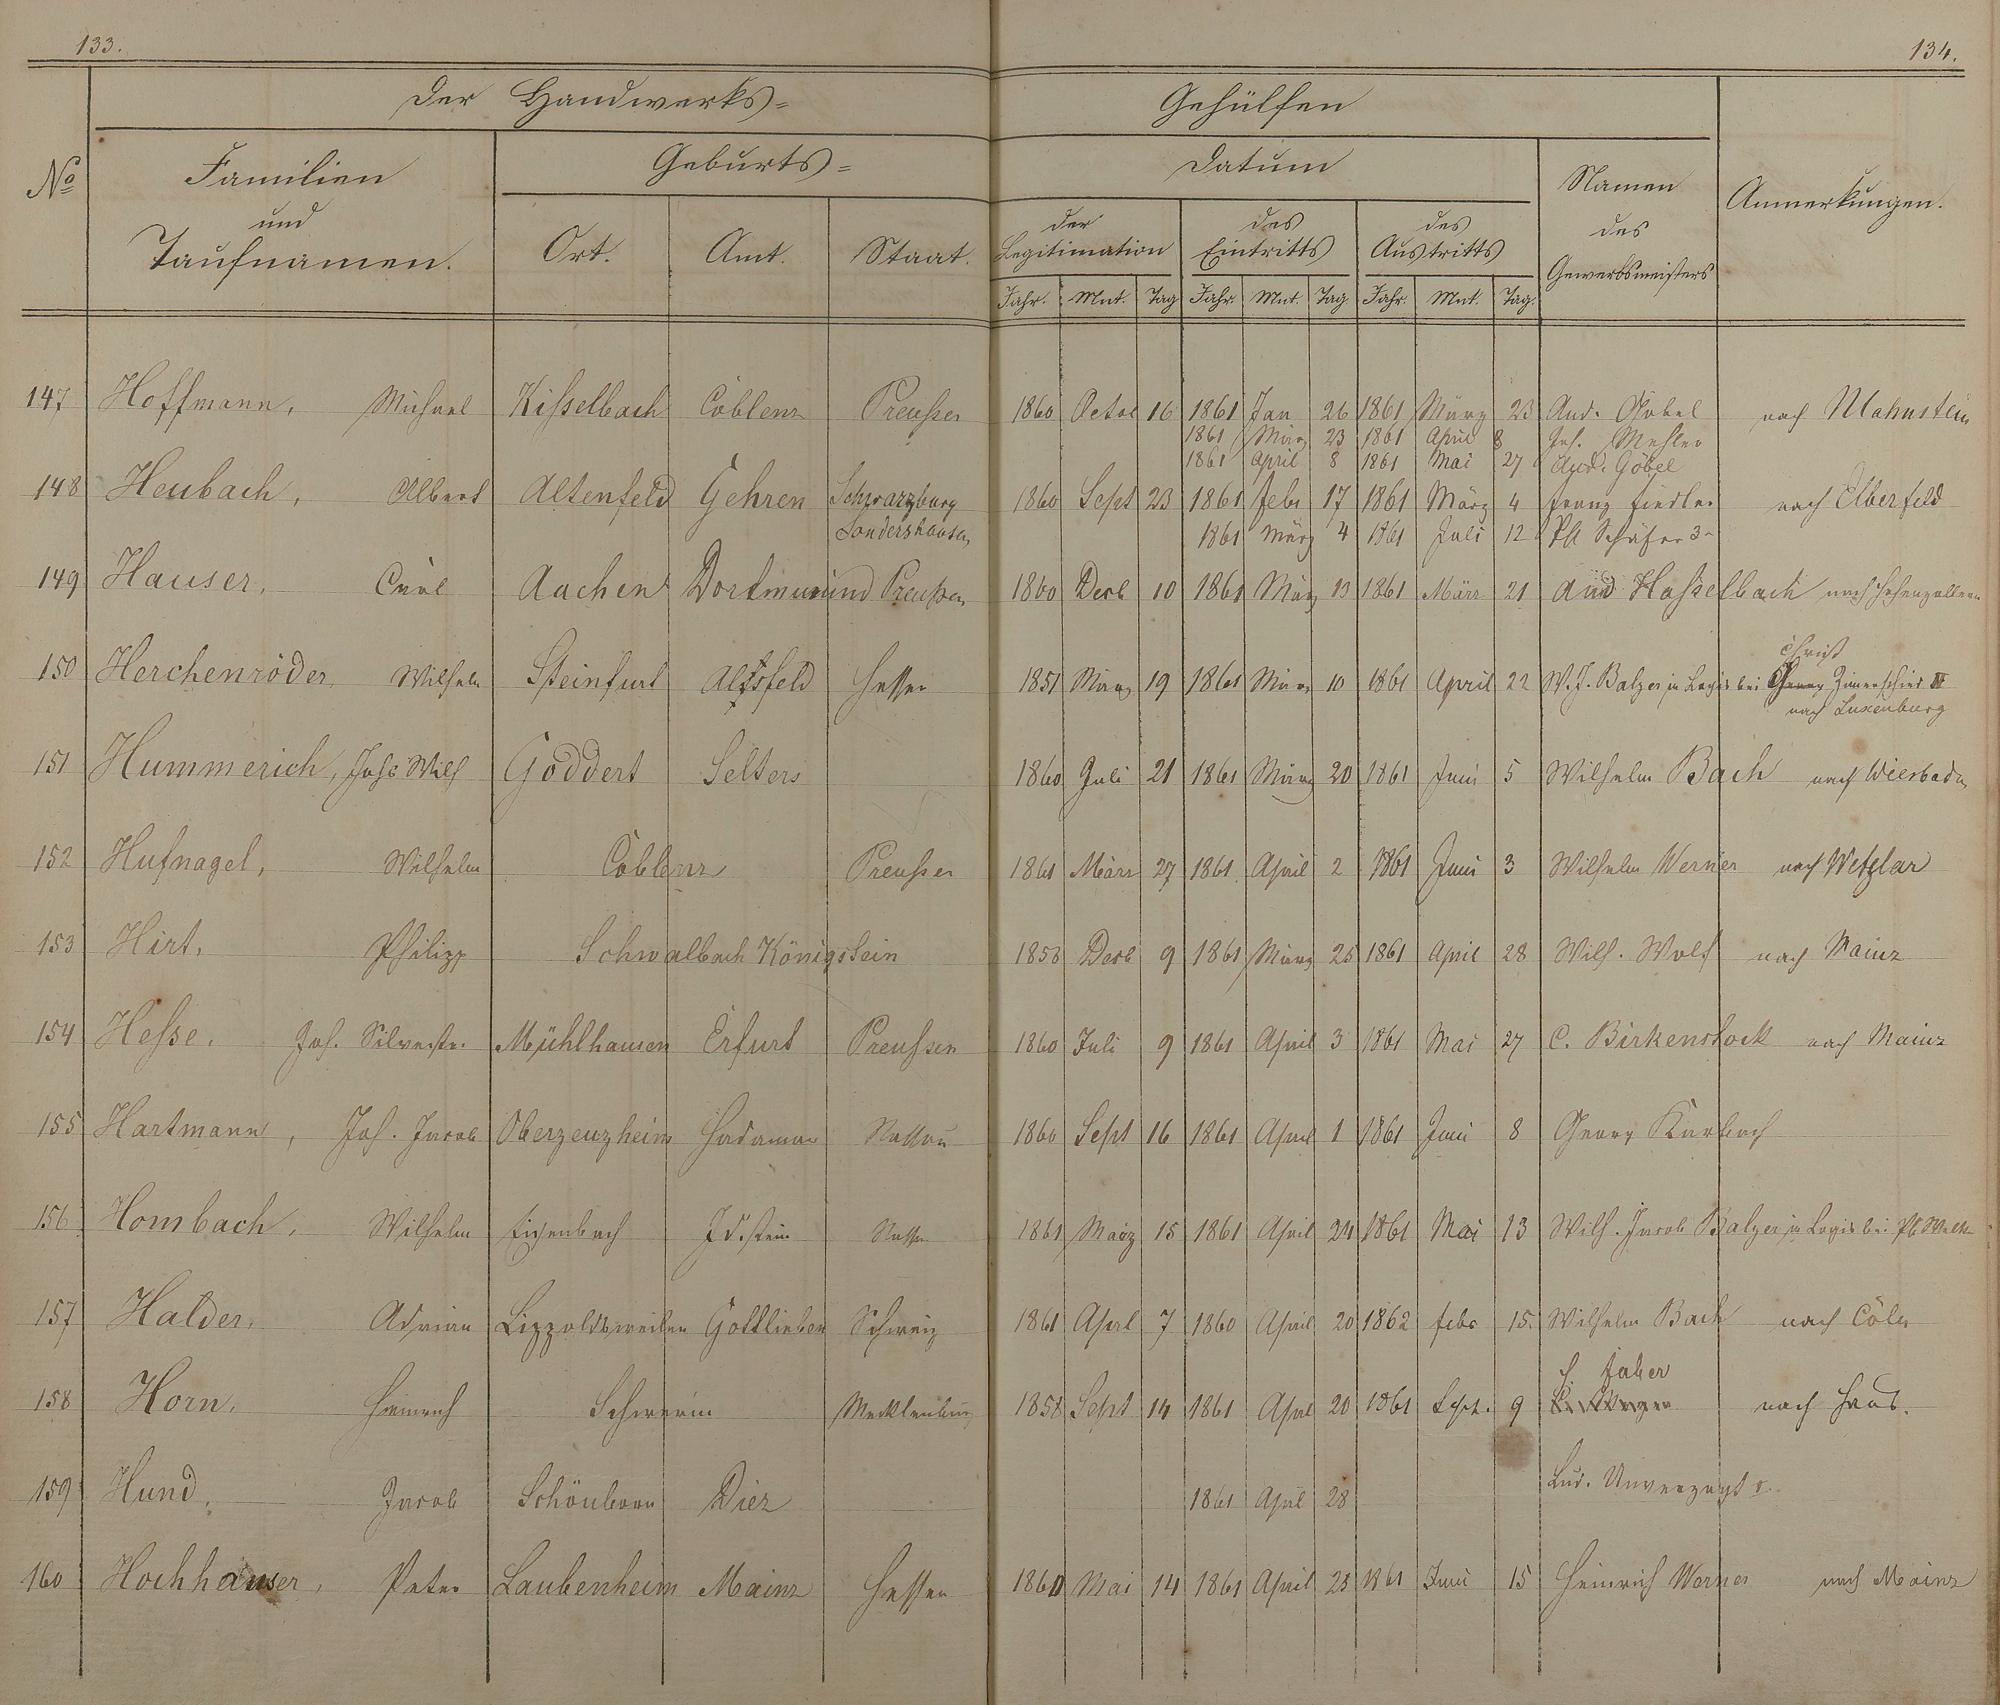 133.
134.
Der Handwerks= Gehülfen
No
Familien und Taufnamen.
Geburts=
Ort. Amt. Staat.
Datum
der Legitimation
des Eintritts
des Austritts
Jahr. Mnt. Tag Jahr. Mnt. Tag Jahr. Mnt. Tag.
Namen des Gewerbsmeisters
Anmerkungen.
147 Hoffmann, Michael Kisselbach Coblenz Preußen 1860 Octob 16 1861 Jan 26 1861 März 23 And. Göbel nach
1861 März 23 1861 April 8 Joh. Mehler
1861 April 8 1861 Mai 27 And. Göbel
148 Heubach, Albert Altenfeld Gehren Schwarzburg 1860 Sept 23 1861 Febr 17 1861 März 4 Franz Fiedler nach Elberfeld
Sondershausen 1861 März 4 1861 Juli 12 Ph Schäfer 3r
149 Hauser, Carl Aachen Dortmund Preußen 1860 Decb 10 1861 März 13 1861 März 21 And Hasselbach nach Hohenzollern
150 Herchenröder, Wilhelm Steinfurt Alsfeld Hessen 1851 März 19 1861 März 10 1861 April 22 W. J. Balzer in Logis bei Christ Zimerschied IV
nach Luxenburg
151 Hummerich, Johs Wilh Goddert Selters 1860 Juli 21 1861 März 20 1861 Juni 5 Wilhelm Bach nach Wiesbaden
152 Hufnagel, Wilhelm Coblenz Preußen 1861 März 27 1861 April 2 1861 Juni 3 Wilhelm Werner nach Wetzlar
153 Hirt, Philipp Schwalbach Königstein 1858 Decb 9 1861 März 25 1861 April 28 Wilh. Wolf nach Mainz
154 Hesse, Joh. Silvester Mühlhausen Erfurt Preussen 1860 Juli 9 1861 April 3 1861 Mai 27 C. Birkenstock nach Mainz
155 Hartmann, Joh. Jacob Oberzeuzheim Hadamar Nassau 1860 Sept 16 1861 April 1 1861 Juni 8 Georg Kurbach
156 Hombach, Wilhelm Eisenbach Idstein Nassau 1861 März 15 1861 April 24 1861 Mai 13 Wilh. Jacob Balzer in Logis bei Ph
157 Halder, Adrian Lippoldsweilen Gottlieben Schweiz 1861 April 7 1860 April 20 1862 Febr 15. Wilhelm Bach nach Cöln
158 Horn, Heinrich Schwerin Mecklenburg 1858 Sept 14 1861 April 20 1861 Sept. 9 Faber nach Haus.
159 Hund, Jacob Schönborn Diez 1861 April 28 Lud. Unverzagt
160 Hochhauser, Peter Laubenheim Mainz Hessen 1860 Mai 14 1861 April 23 1861 Juni 15 Heinrich Werner nach Mainz